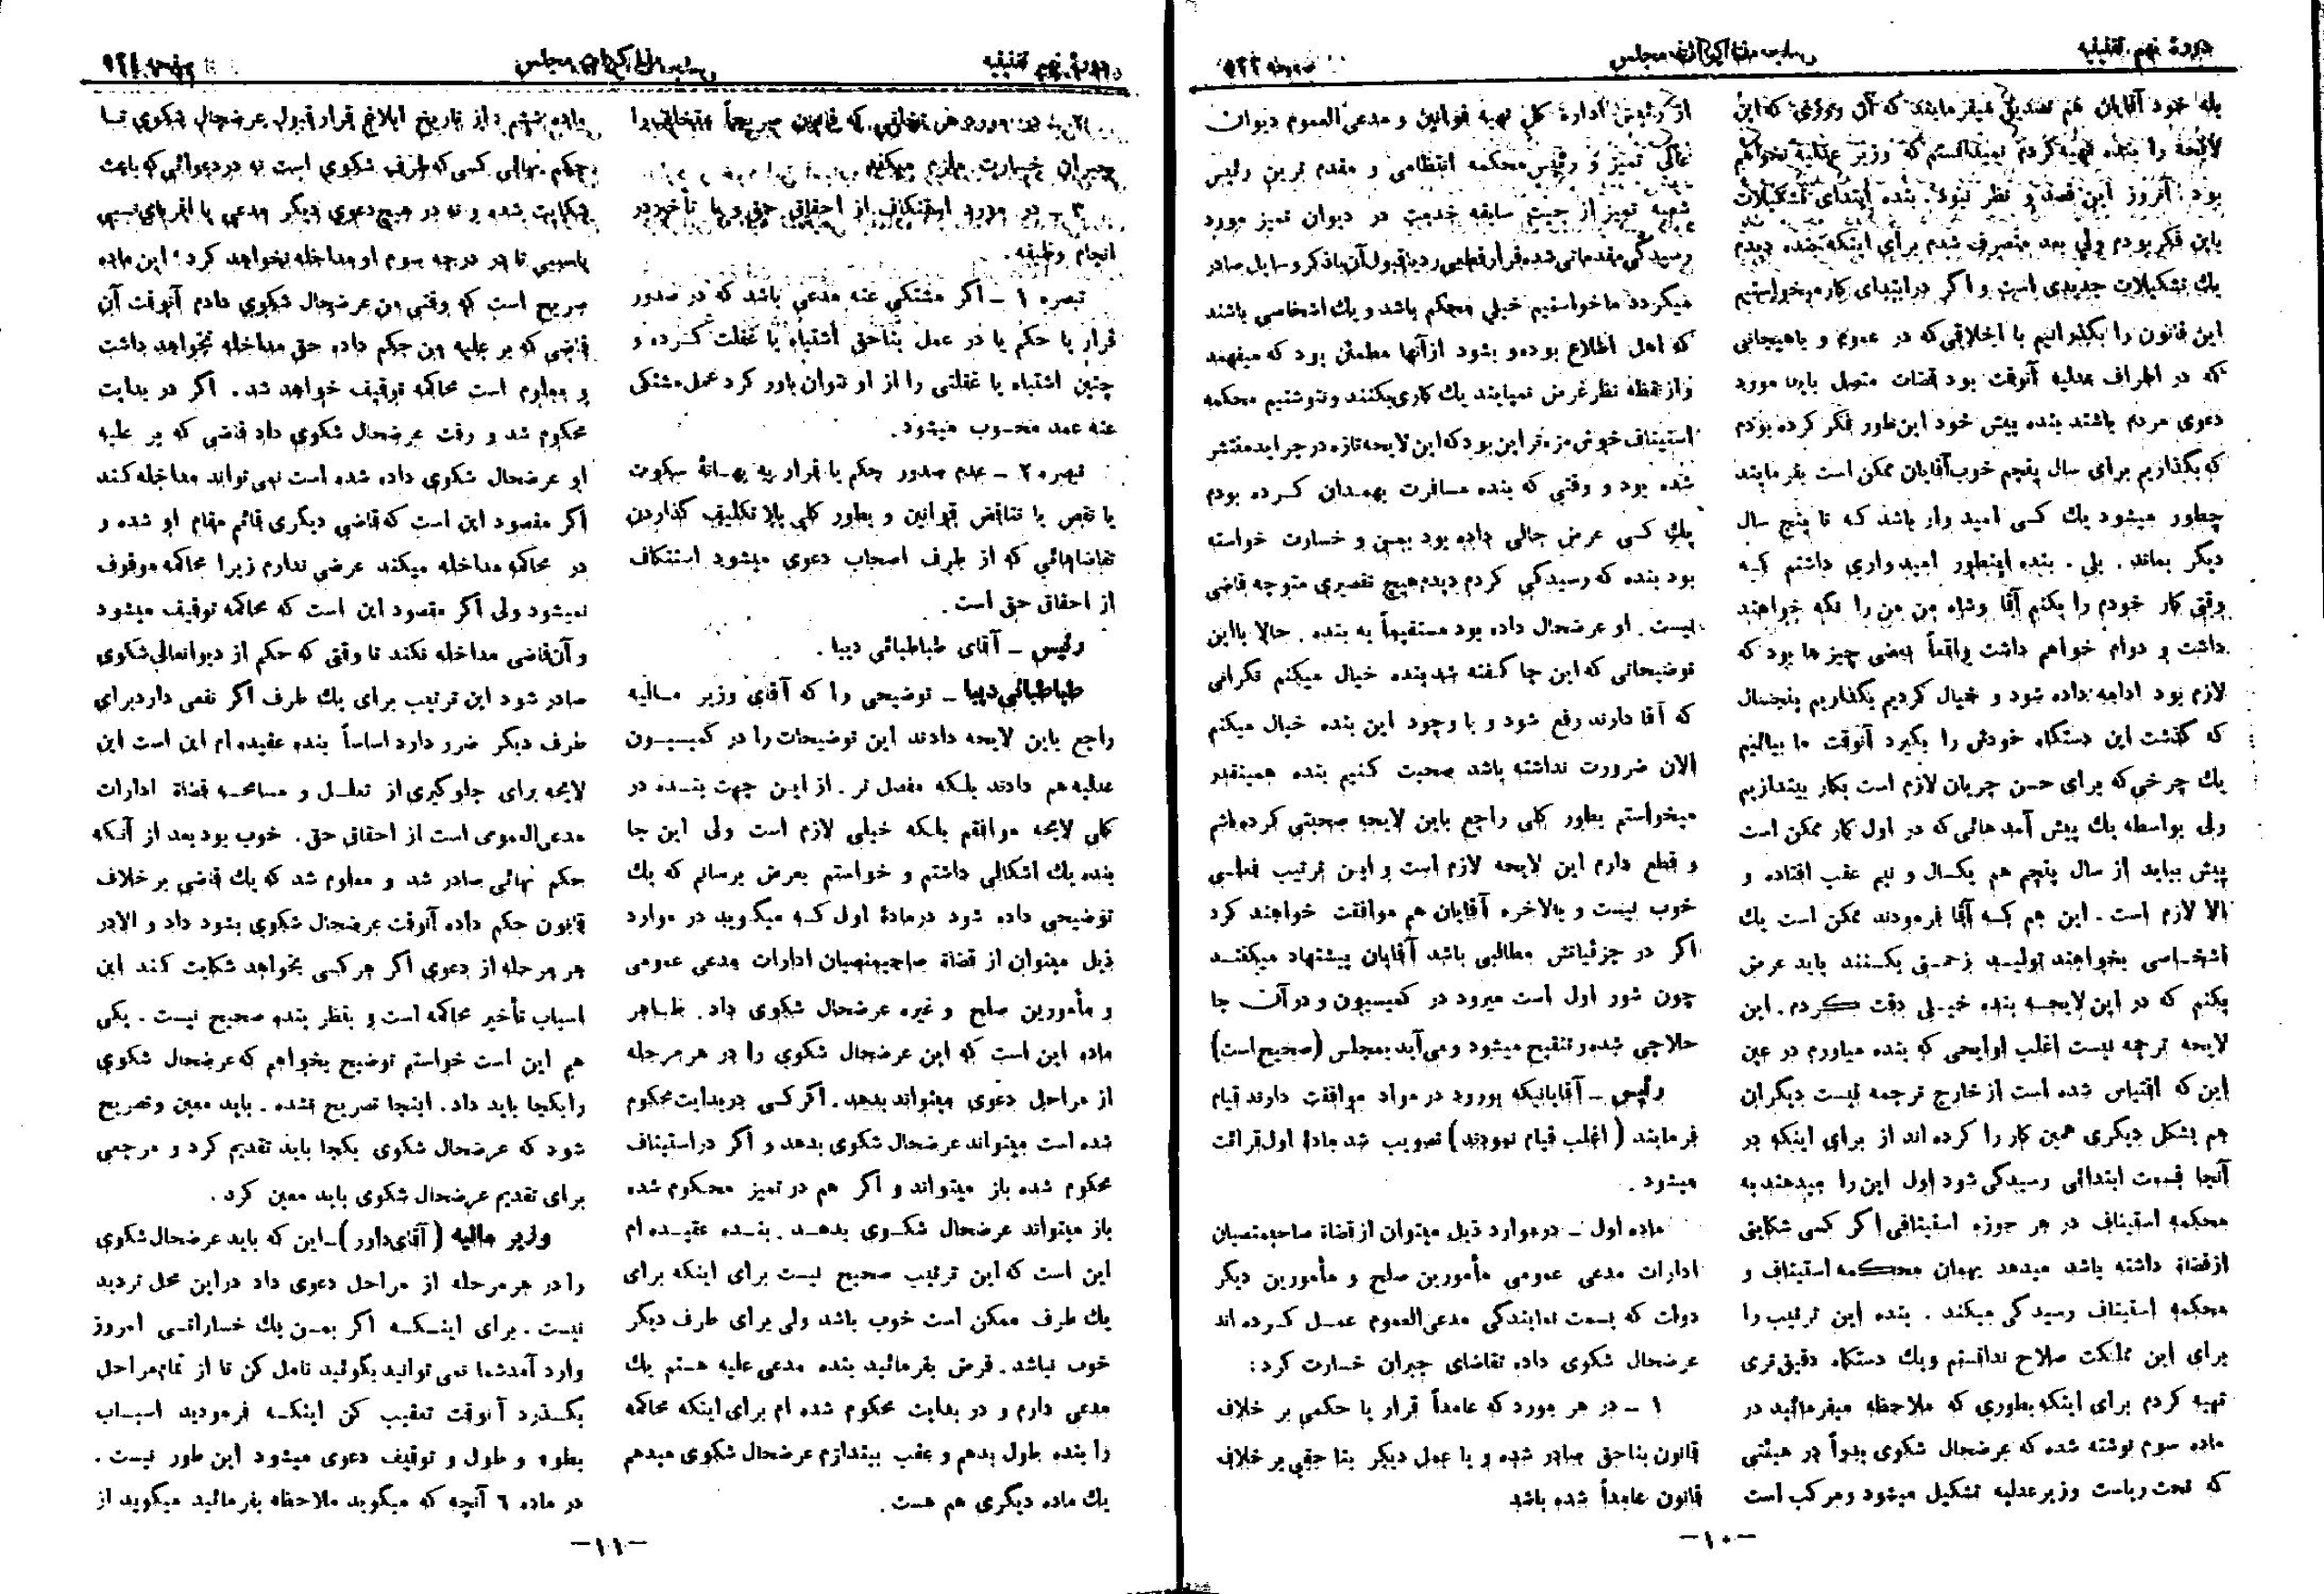 دورهٔ نهم تقنینیه
مذاکرات مجلس
صفحه
بله خود آقایان هم تصدیق میفرمایند که آن روزی که این
لایحه را بنده تهیه کردم نمیدانستم که وزیر عدلیه نخواهم
بود. آنروز این قصد و نظر نبود. بنده ابتدای تشکیلات
باین فکر بودم ولی بعد منصرف شدم برای اینکه بنده دیدم
یك تشکیلات جدیدی است و اگر در ابتدای کار میخواستیم
این قانون را بگذرانیم با اخلاقی که در عموم و با هیجانی
که در اطراف عدلیه آنوقت بود قضات متصل باید مورد
دعوی مردم باشند بنده پیش خود این طور فکر کرده بودم
که بگذاریم برای سال پنجم خوب آقایان ممکن است بفرمایند
چطور میشود یك کسی امید وار باشد که تا پنج سال
دیگر بماند. بلی. بنده اینطور امیدواری داشتم که
وقتی کار خودم را بکنم آقا و شاه من من را نگه خواهند
داشت و دوام خواهم داشت واقعاً بعضی چیز ها بود که
لازم بود ادامه داده شود و خیال کردیم بگذاریم پنجسال
که گذشت این دستگاه خودش را بگیرد آنوقت ما بیائیم
یك چرخی که برای حسن جریان لازم است بکار بیندازیم
ولی بواسطه یك پیش آمد هائی که در اول کار ممکن است
پیش بیاید از سال پنجم هم یکسال و نیم عقب افتاده و
الا لازم است. این هم که آقا فرمودند ممکن است یك
اشخاصی بخواهند تولید زحمتی بکنند باید عرض
بکنم که در این لایحه بنده خیلی دقت کردم. این
لایحه ترجمه نیست اغلب لوایحی که بنده میاورم در عین
این که اقتباس شده است از خارج ترجمه نیست دیگران
هم بشکل دیگری همین کار را کرده اند از برای اینکه در
آنجا قسمت ابتدائی رسیدگی شود اول این را میدهند به
محکمه استیناف در هر حوزه استینافی اگر کسی شکایتی
از قضاة داشته باشد میدهد بهمان محکمه استیناف و
محکمه استیناف رسیدگی میکند. بنده این ترتیب را
برای این مملکت صلاح ندانستم و یك دستگاه دقیق تری
تهیه کردم برای اینکه بطوری که ملاحظه میفرمائید در
ماده سوم نوشته شده که عرضحال شکوی بدواً در هیئتی
که تحت ریاست وزیر عدلیه تشکیل میشود و مرکب است
از رئیس ادارهٔ کل تهیه قوانین و مدعی العموم دیوان
عالی تمیز و رئیس محکمه انتظامی و مقدم ترین رئیس
شعبه تمیز از حیث سابقه خدمت در دیوان تمیز مورد
رسیدگی مقدماتی شده قرار قطعی رد یا قبول آن با ذکر دلایل صادر
میگردد ما خواستیم خیلی محکم باشد و یك اشخاصی باشند
که اهل اطلاع بوده و بشود از آنها مطمئن بود که میفهمند
و از نقطه نظر غرض نمیایند یك کاری بکنند و ننوشتیم محکمه
استیناف خوش مزه تر این بود که این لایحه تازه در جراید منتشر
شده بود و وقتی که بنده مسافرت بهمدان کرده بودم
یك کسی عرض حالی داده بود بمن و خسارت خواسته
بود بنده که رسیدگی کردم دیدم هیچ تقصیری متوجه قاضی
نیست. او عرضحال داده بود مستقیماً به بنده. حالا با این
توضیحاتی که این جا گفته شد بنده خیال میکنم نگرانی
که آقا دارند رفع شود و با وجود این بنده خیال میکنم
الان ضرورت نداشته باشد صحبت کنیم بنده همینقدر
میخواستم بطور کلی راجع باین لایحه صحبتی کرده باشم
و قطع دارم این لایحه لازم است و این ترتیب فعلی
خوب نیست و بالاخره آقایان هم موافقت خواهند کرد
اگر در جزئیاتش مطالبی باشد آقایان پیشنهاد میکنند
چون شور اول است میرود در کمیسیون و در آن جا
حلاجی شده و تنقیح میشود و می آید بمجلس (صحیح است)
رئیس ـ آقایانیکه بورود در مواد موافقت دارند قیام
فرمایند (اغلب قیام نمودند) تصویب شد مادهٔ اول قرائت
میشود.
ماده اول ـ در موارد ذیل میتوان از قضاة صاحبمنصبان
ادارات مدعی عمومی مأمورین صلح و مأمورین دیگر
دولت که بسمت نمایندگی مدعی العموم عمل کرده اند
عرضحال شکوی داده تقاضای جبران خسارت کرد:
۱ ـ در هر مورد که عامداً قرار یا حکمی بر خلاف
قانون بناحق صادر شده و یا عمل دیگر بنا حقی بر خلاف
قانون عامداً شده باشد
ـ۱۰ـ
دورهٔ نهم تقنینیه
مذاکرات مجلس
صفحه
۲ـ در مورد هر تخلفی که قانون صریحاً متخلف را
بجبران خسارت ملزم میکند
۳ ـ در مورد استنکاف از احقاق حق و یا تأخیر در
انجام وظیفه.
تبصره ۱ ـ اگر مشتکی عنه مدعی باشد که در صدور
قرار یا حکم یا در عمل بناحق اشتباه یا غفلت کرده و
چنین اشتباه یا غفلتی را از او نتوان باور کرد عمل مشتکی
عنه عمد محسوب میشود.
تبصره ۲ ـ عدم صدور حکم یا قرار به بهانهٔ سکوت
یا نقص یا تناقض قوانین و بطور کلی بلا تکلیف گذاردن
تقاضاهائی که از طرف اصحاب دعوی میشود استنکاف
از احقاق حق است.
رئیس ـ آقای طباطبائی دیبا.
طباطبائی دیبا ـ توضیحی را که آقای وزیر مالیه
راجع باین لایحه دادند این توضیحات را در کمیسیون
عدلیه هم دادند بلکه مفصل تر. از این جهت بنده در
کلی لایحه موافقم بلکه خیلی لازم است ولی این جا
بنده یك اشکالی داشتم و خواستم بعرض برسانم که یك
توضیحی داده شود در مادهٔ اول که میگوید در موارد
ذیل میتوان از قضاة صاحبمنصبان ادارات مدعی عمومی
و مأمورین صلح و غیره عرضحال شکوی داد. ظاهر
ماده این است که این عرضحال شکوی را در هر مرحله
از مراحل دعوی میتواند بدهد. اگر کسی در بدایت محکوم
شده است میتواند عرضحال شکوی بدهد و اگر در استیناف
محکوم شده باز میتواند و اگر هم در تمیز محکوم شده
باز میتواند عرضحال شکوی بدهد. بنده عقیده ام
این است که این ترتیب صحیح نیست برای اینکه برای
یك طرف ممکن است خوب باشد ولی برای طرف دیگر
خوب نباشد. فرض بفرمائید بنده مدعی علیه هستم یك
مدعی دارم و در بدایت محکوم شده ام برای اینکه محاکمه
را بنده طول بدهم و عقب بیندازم عرضحال شکوی میدهم
یك ماده دیگری هم هست.
ماده ششم ـ از تاریخ ابلاغ قرار قبول عرضحال شکوی تا
حکم نهائی کسی که طرف شکوی است نه در دعوائی که باعث
شکایت شده و نه در هیچ دعوی دیگر مدعی یا اقربای نسبی
یا سببی تا در درجه سوم او مداخله نخواهد کرد؛ این ماده
صریح است که وقتی من عرضحال شکوی دادم آنوقت آن
قاضی که بر علیه من حکم داده حق مداخله نخواهد داشت
و معلوم است محاکمه توقیف خواهد شد. اگر در بدایت
محکوم شد و رفت عرضحال شکوی داد قاضی که بر علیه
او عرضحال شکوی داده شده است نمی تواند مداخله کند
اگر مقصود این است که قاضی دیگری قائم مقام او شده و
در محاکمه مداخله میکند عرضی ندارم زیرا محاکمه موقوف
نمیشود ولی اگر مقصود این است که محاکمه توقیف میشود
و آن قاضی مداخله نکند تا وقتی که حکم از دیوانعالی شکوی
صادر شود این ترتیب برای یك طرف اگر نفعی دارد برای
طرف دیگر ضرر دارد اساساً بنده عقیده ام این است این
لایحه برای جلوگیری از تعلل و مسامحه قضاة ادارات
مدعی العمومی است از احقاق حق. خوب بود بعد از آنکه
حکم نهائی صادر شد و معلوم شد که یك قاضی بر خلاف
قانون حکم داده آنوقت عرضحال شکوی بشود داد و الا در
هر مرحله از دعوی اگر هر کسی بخواهد شکایت کند این
اسباب تأخیر محاکمه است و بنظر بنده صحیح نیست. یکی
هم این است خواستم توضیح بخواهم که عرضحال شکوی
را بکجا باید داد. اینجا تصریح نشده. باید معین و تصریح
شود که عرضحال شکوی بکجا باید تقدیم کرد و مرجعی
برای تقدیم عرضحال شکوی باید معین کرد.
وزیر مالیه (آقای داور) ـ این که باید عرضحال شکوی
را در هر مرحله از مراحل دعوی داد در این محل تردید
نیست. برای اینکه اگر بمن یك خساراتی امروز
وارد آمد شما نمی توانید بگوئید تامل کن تا از تمام مراحل
بگذرد آنوقت تعقیب کن اینکه فرمودید اسباب
بطوء و طول و توقیف دعوی میشود این طور نیست.
در ماده ٦ آنچه که میگوید ملاحظه بفرمائید میگوید از
ـ۱۱ـ